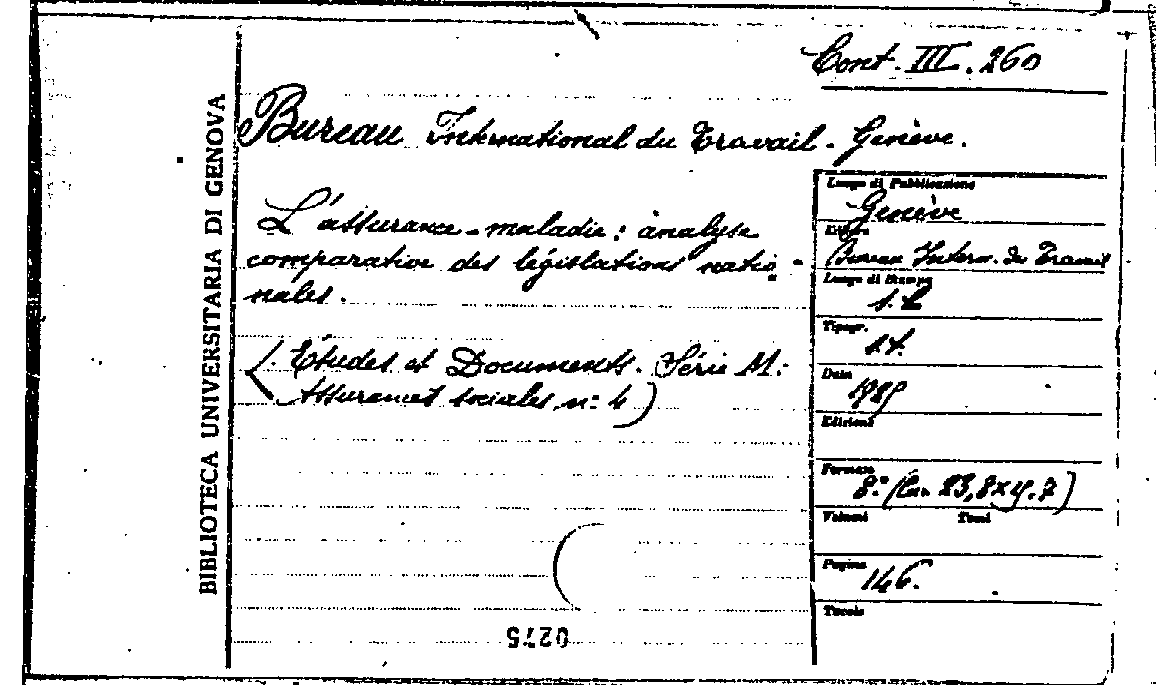 Cont. III. 260
BIBLIOTECA UNIVERSITARIA DI GENOVA
Bureau International du Travail - Genève.
L'assurance-maladie: analyse
comparative des législations natio-
nales.
(Études et Documents. Série M:
Assurances sociales n: 4)
Luogo di Pubblicazione
Genève
Editore
Bureau Intern. du Travail
Luogo di Stampa
s.l.
Tipogr.
s.t.
Data
Edizione
Formato
8.° (cm. 23,8x
Volumi Tomi
Pagine
146.
Tavole
0275